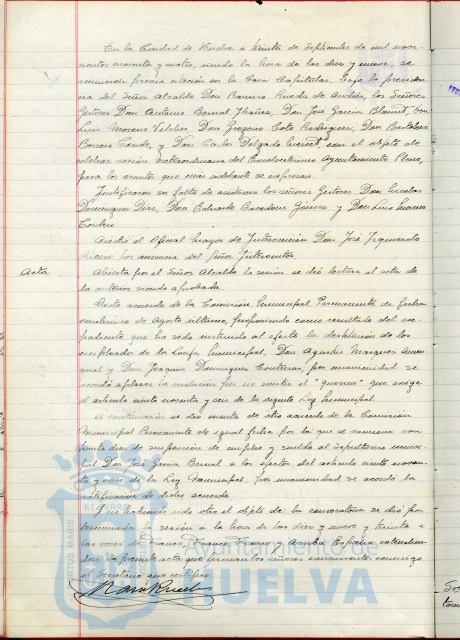 En la Ciudad de Huelva a treinta de Septiembre de mil nove-
cientos cuarenta y cuatro, siendo la hora de las diez y nueve, se
reunieron previa citación en la Casa Capitular, bajo la presiden-
cia del Señor Alcalde Don Ramiro Ruedas de Andrés, los Señores
Gestores Don Antonio Bernal Ibáñez, Don José García Don
Luis Moreno Don Gregorio Coto Rodríguez, Don Bartolomé
Conde, y Don Carlos Delgado con el objeto de
celebrar sesión extraordinaria del Excelentísimo Ayuntamiento Pleno,
para los asuntos que más adelante se expresan.
Justificaron su falta de asistencia los señores Gestores Don Nicolas
Dominguez Díaz, Don Eduardo Gomez y Don Luis
Asistió el Oficial mayor de Intervención Don José Izquierdo
por ausencia del Señor Interventor.
Acta
Abierta por el Señor Alcalde la sesión se dió lectura al acta de
la anterior siendo aprobada.
Visto acuerdo de la Comisión Municipal Permanente de fecha
de Agosto último, proponiendo como resultado del ex-
pediente que ha sido instruido al efecto la destitución de los
empleados de la Municipal, Don Agustín Marquez
y Don Joaquin Dominguez Contreras, por unanimidad se
acordó aplazar la resolución por no reunirse el "quorum" que exige
el artículo ciento noventa y seis de la vigente Ley Municipal.
A continuación se dió cuenta de otro acuerdo de la Comisión
Municipal Permanente de igual fecha por la que se sanciona con
treinta dias de suspensión de empleo y sueldo al Sepulturero munici-
pal Don José García Bernal a los efectos del artículo ciento noven-
ta y de la Ley Municipal, por unanimidad se acordó la
ratificación de dicho acuerdo.
Y no habiendo sido otro el objeto de la convocatoria se dió por
terminada la sesión a la hora de las diez y nueve y treinta a
las voces de Franco, Franco, Franco y Arriba España extendien-
dose la presente acta que firman los señores concurrentes conmigo
el Secretario que certifico.
Ayuntamiento de
HUELVA